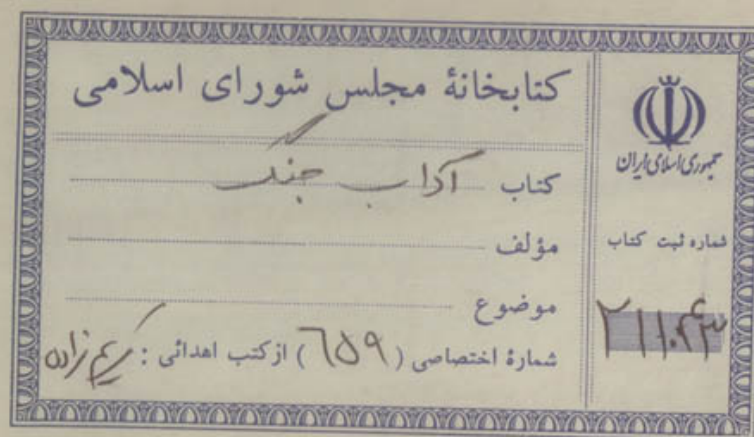 کتابخانهٔ مجلس شورای اسلامی
کتاب آداب جنگ
مؤلف
موضوع
شمارهٔ اختصاصی (۶۵۹) از کتب اهدائی : کریم زاده
جمهوری اسلامی ایران
شماره ثبت کتاب
۲۱۱۰۴۳